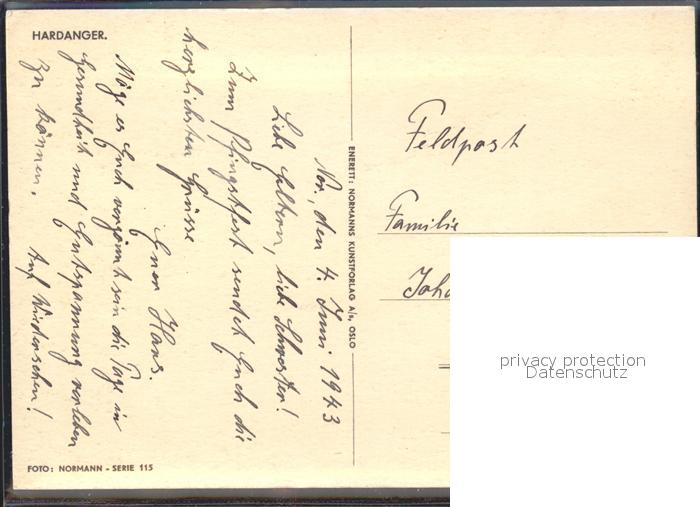 HARDANGER.
Nor., den 4. Juni 1943
Liebe Eltern, liebe Schwester!
Zum Pfingstfest sendet Euch die
herzlichsten Grüsse
Euer Hans.
Möge es Euch vergönnt sein die Tage in
Gesundheit und Entspannung verleben
zu können. Auf Wiedersehen!
FOTO: NORMANN - SERIE 115
ENERETT: NORMANNS KUNSTFORLAG A/s, OSLO
Feldpost
Familie
Joha
privacy protection
Datenschutz